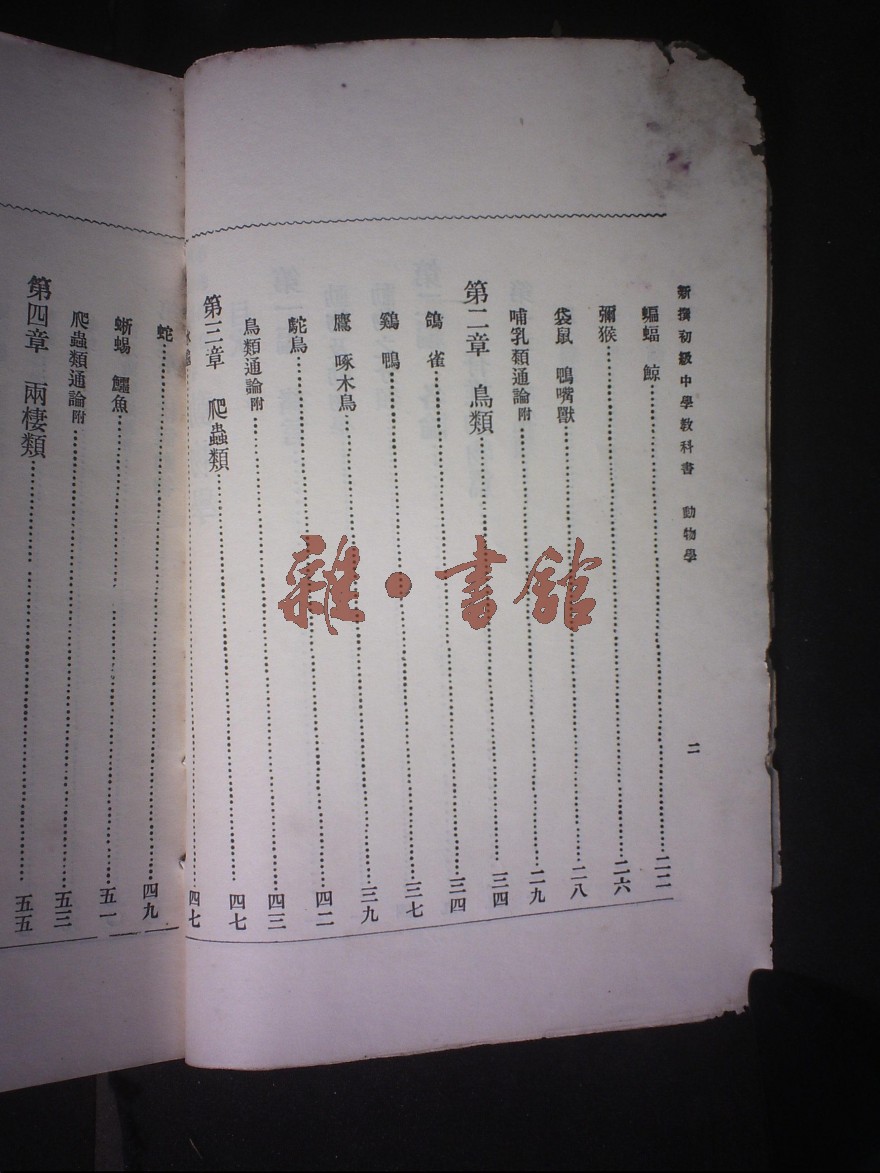 新撰初級中學教科書 動物學 二
蝙蝠 鯨……二二
彌猴……二六
袋鼠 鴨嘴獸……二八
哺乳類通論附……二九
第二章 鳥類……三四
鴿 雀……三四
鷄 鴨……三七
鷹 啄木鳥……三九
駝鳥……四二
鳥類通論附……四三
第三章 爬蟲類……四七
……四七
蛇……四九
蜥蜴 鱷魚……五一
爬蟲類通論附……五三
第四章 兩棲類……五五
雜·書館